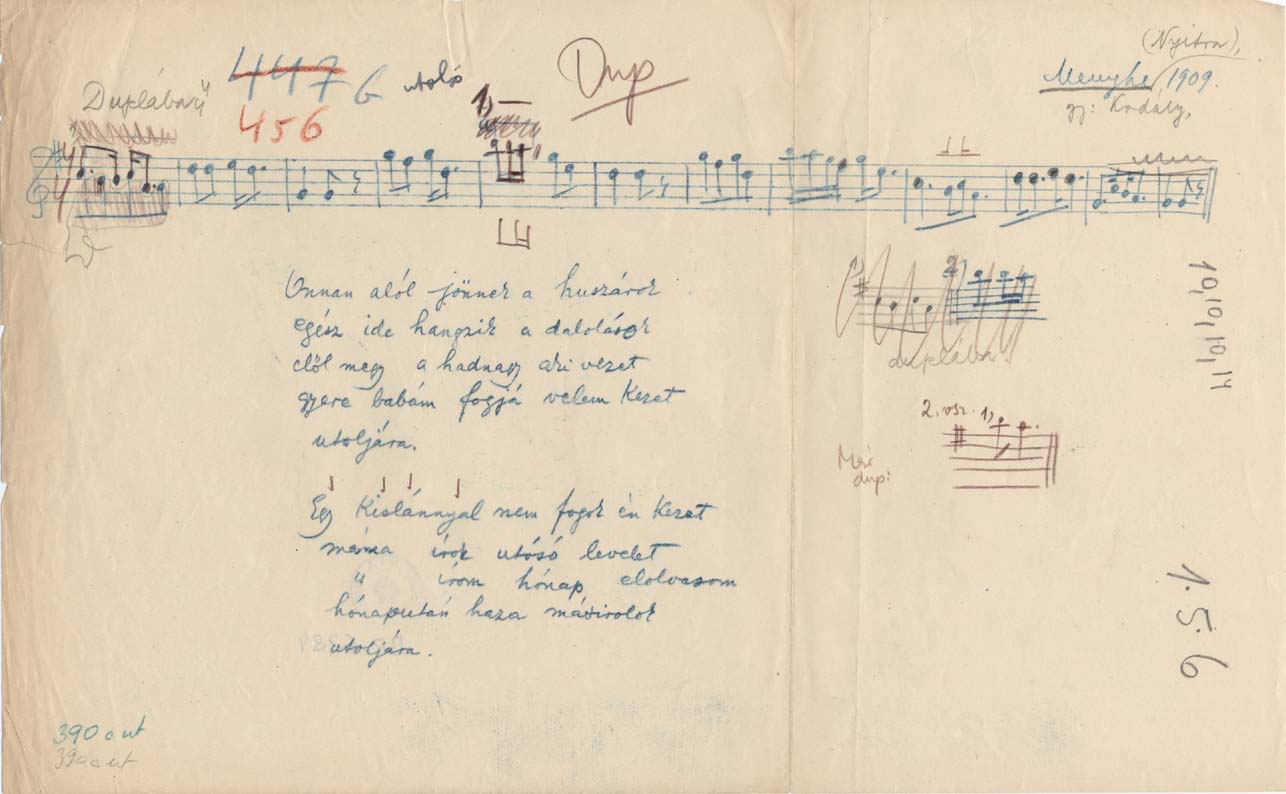 (Nyitra),
Menyhe, 1909.
gy: Kodály,
447 6 utolsó
Duplában
456
Dup
1,
4
4
Onnan alól jönnek a huszárok
egész ide hangzik a dalolások
elől megy a hadnagy aki vezet
gyere babám fogjá velem kezet
utoljára.
Egy kislánnyal nem fogok én kezet
máma írok utósó levelet
" írom hónap elolvasom
hónapután haza másirolok
utoljára.
1)
2)
duplában
2. vsz. 1,
Már
dup:
10,10,10,14
1·5·6
390 c. ut
390 c ut